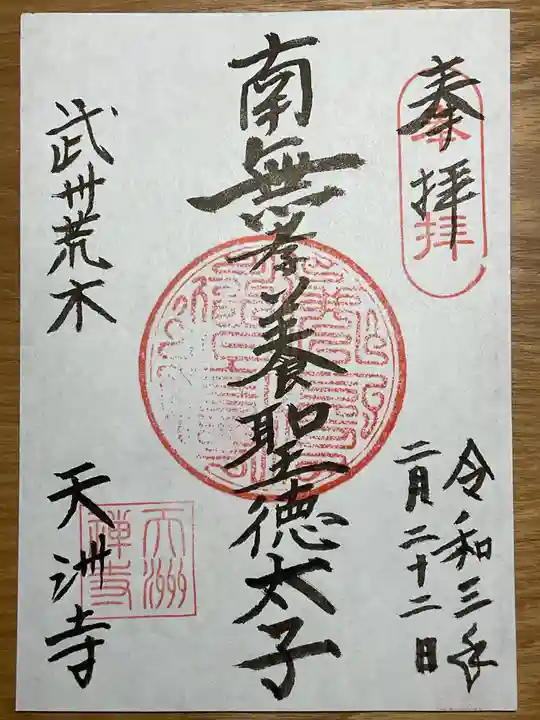 奉拝
奉拝
令和三年
二月二十二日
南無孝養聖徳太子
武州荒木
天洲寺
天洲
禅寺